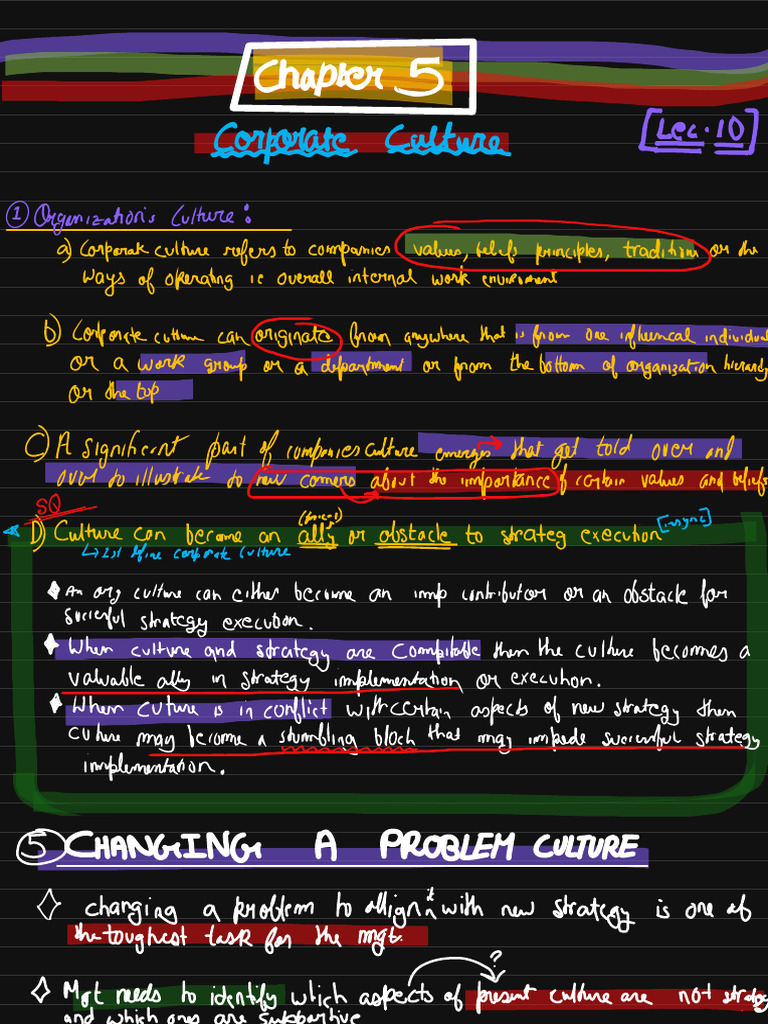 Chapter 5
Corporate Culture
[Lec. 10]
① Organization's Culture:
a) Corporate culture refers to companies values, beliefs principles, traditions or the
ways of operating ie overall internal work enviroment
b) Corporate culture can originate from anywhere that is from one influencial individual
or a work group or a department or from the bottom of organization hierarchy
or the top
C) A significant part of companies culture emerges that get told over and
over to illustrate to new comers about the importance of certain values and beliefs
SQ
D) Culture can become an ally or obstacle to strateg execution [insync]
↳ 1st define corporate culture
An org culture can either become an imp contributor or an obstacle for
succesful strategy execution.
When culture and strategy are compitable then the culture becomes a
valuable ally in strategy implementation or execution.
When cuture is in conflict with certain aspects of new strategy then
culture may become a stumbling block that may impede succesful strategy
implementation.
⑤ CHANGING A PROBLEM CULTURE
changing a problem to allign it with new strategy is one of
the toughest task for the mgt.
?
Mgt needs to identify which aspects of present culture are not strategy
and which ones are supportive